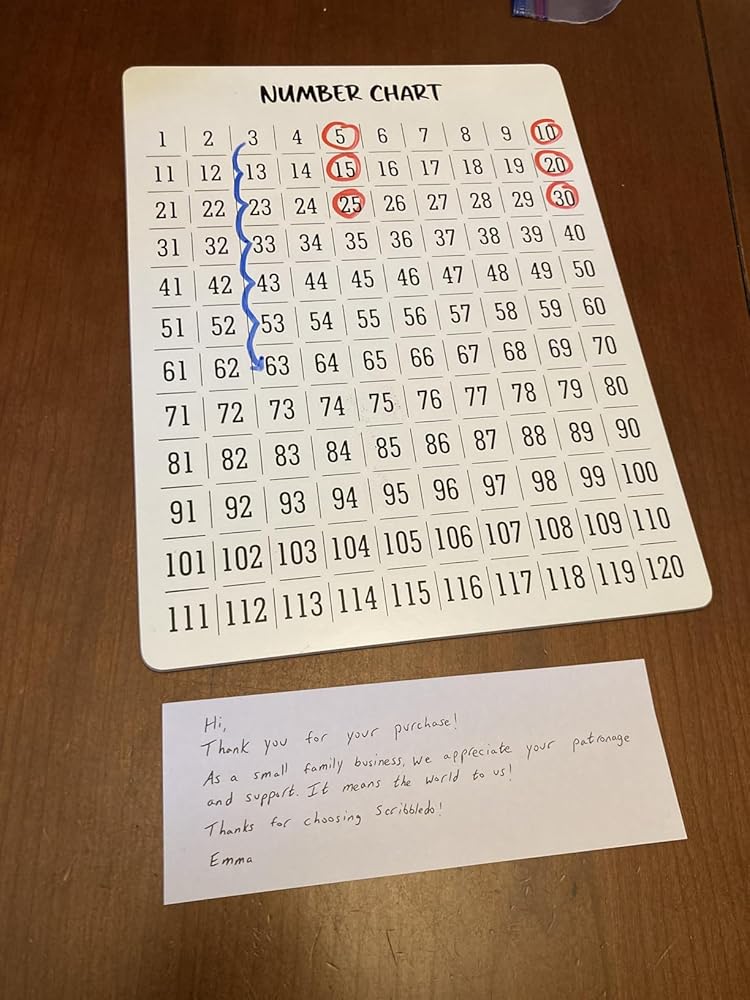 NUMBER CHART
1 2 3 4 5 6 7 8 9 10
11 12 13 14 15 16 17 18 19 20
21 22 23 24 25 26 27 28 29 30
31 32 33 34 35 36 37 38 39 40
41 42 43 44 45 46 47 48 49 50
51 52 53 54 55 56 57 58 59 60
61 62 63 64 65 66 67 68 69 70
71 72 73 74 75 76 77 78 79 80
81 82 83 84 85 86 87 88 89 90
91 92 93 94 95 96 97 98 99 100
101 102 103 104 105 106 107 108 109 110
111 112 113 114 115 116 117 118 119 120
Hi,
Thank you for your purchase!
As a small family business, we appreciate your patronage
and support. It means the world to us!
Thanks for choosing Scribbledo!
Emma